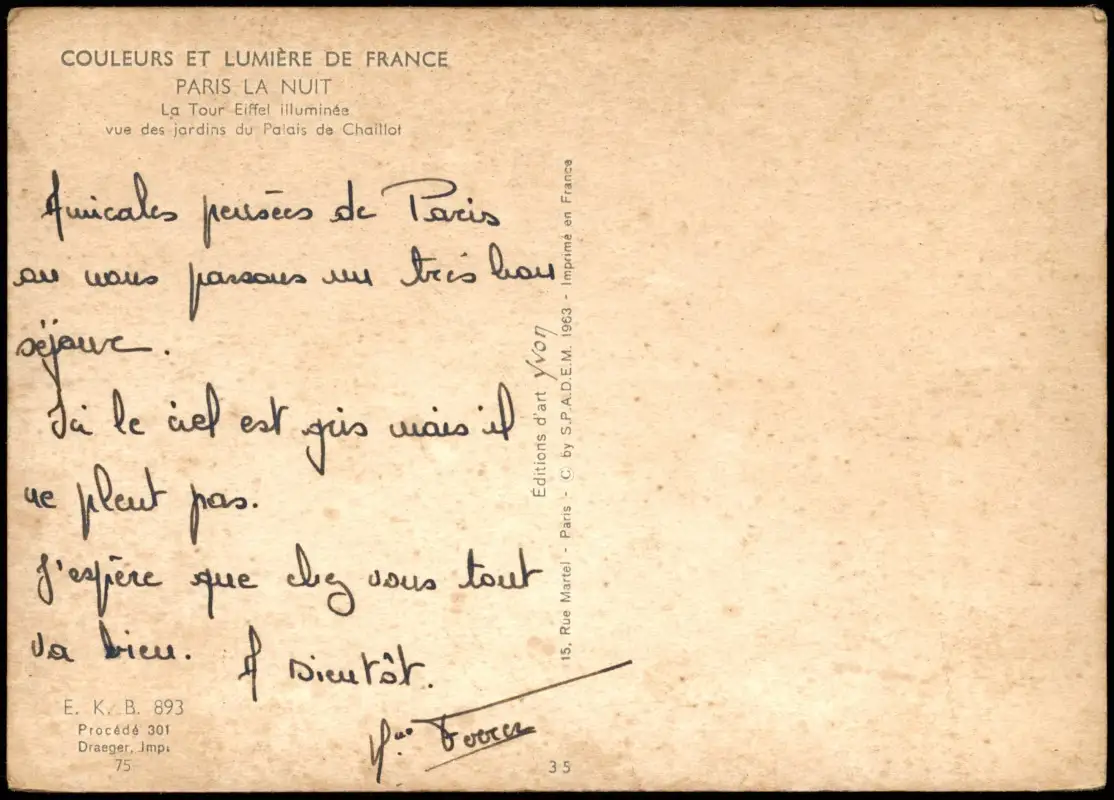 COULEURS ET LUMIÈRE DE FRANCE
PARIS LA NUIT
La Tour Eiffel illuminée
vue des jardins du Palais de Chaillot
Amicales pensées de Paris
ou nous passons un très bon
séjour.
Ici le ciel est gris mais il
ne pleut pas.
J'espère que chez vous tout
va bien. A Bientôt.
E. K. B. 893
Procédé 301
Draeger, Imp.
75
35
Éditions d'art Yvon
15, Rue Martel - Paris - © by S.P.A.D.E.M. 1963 - Imprimé en France